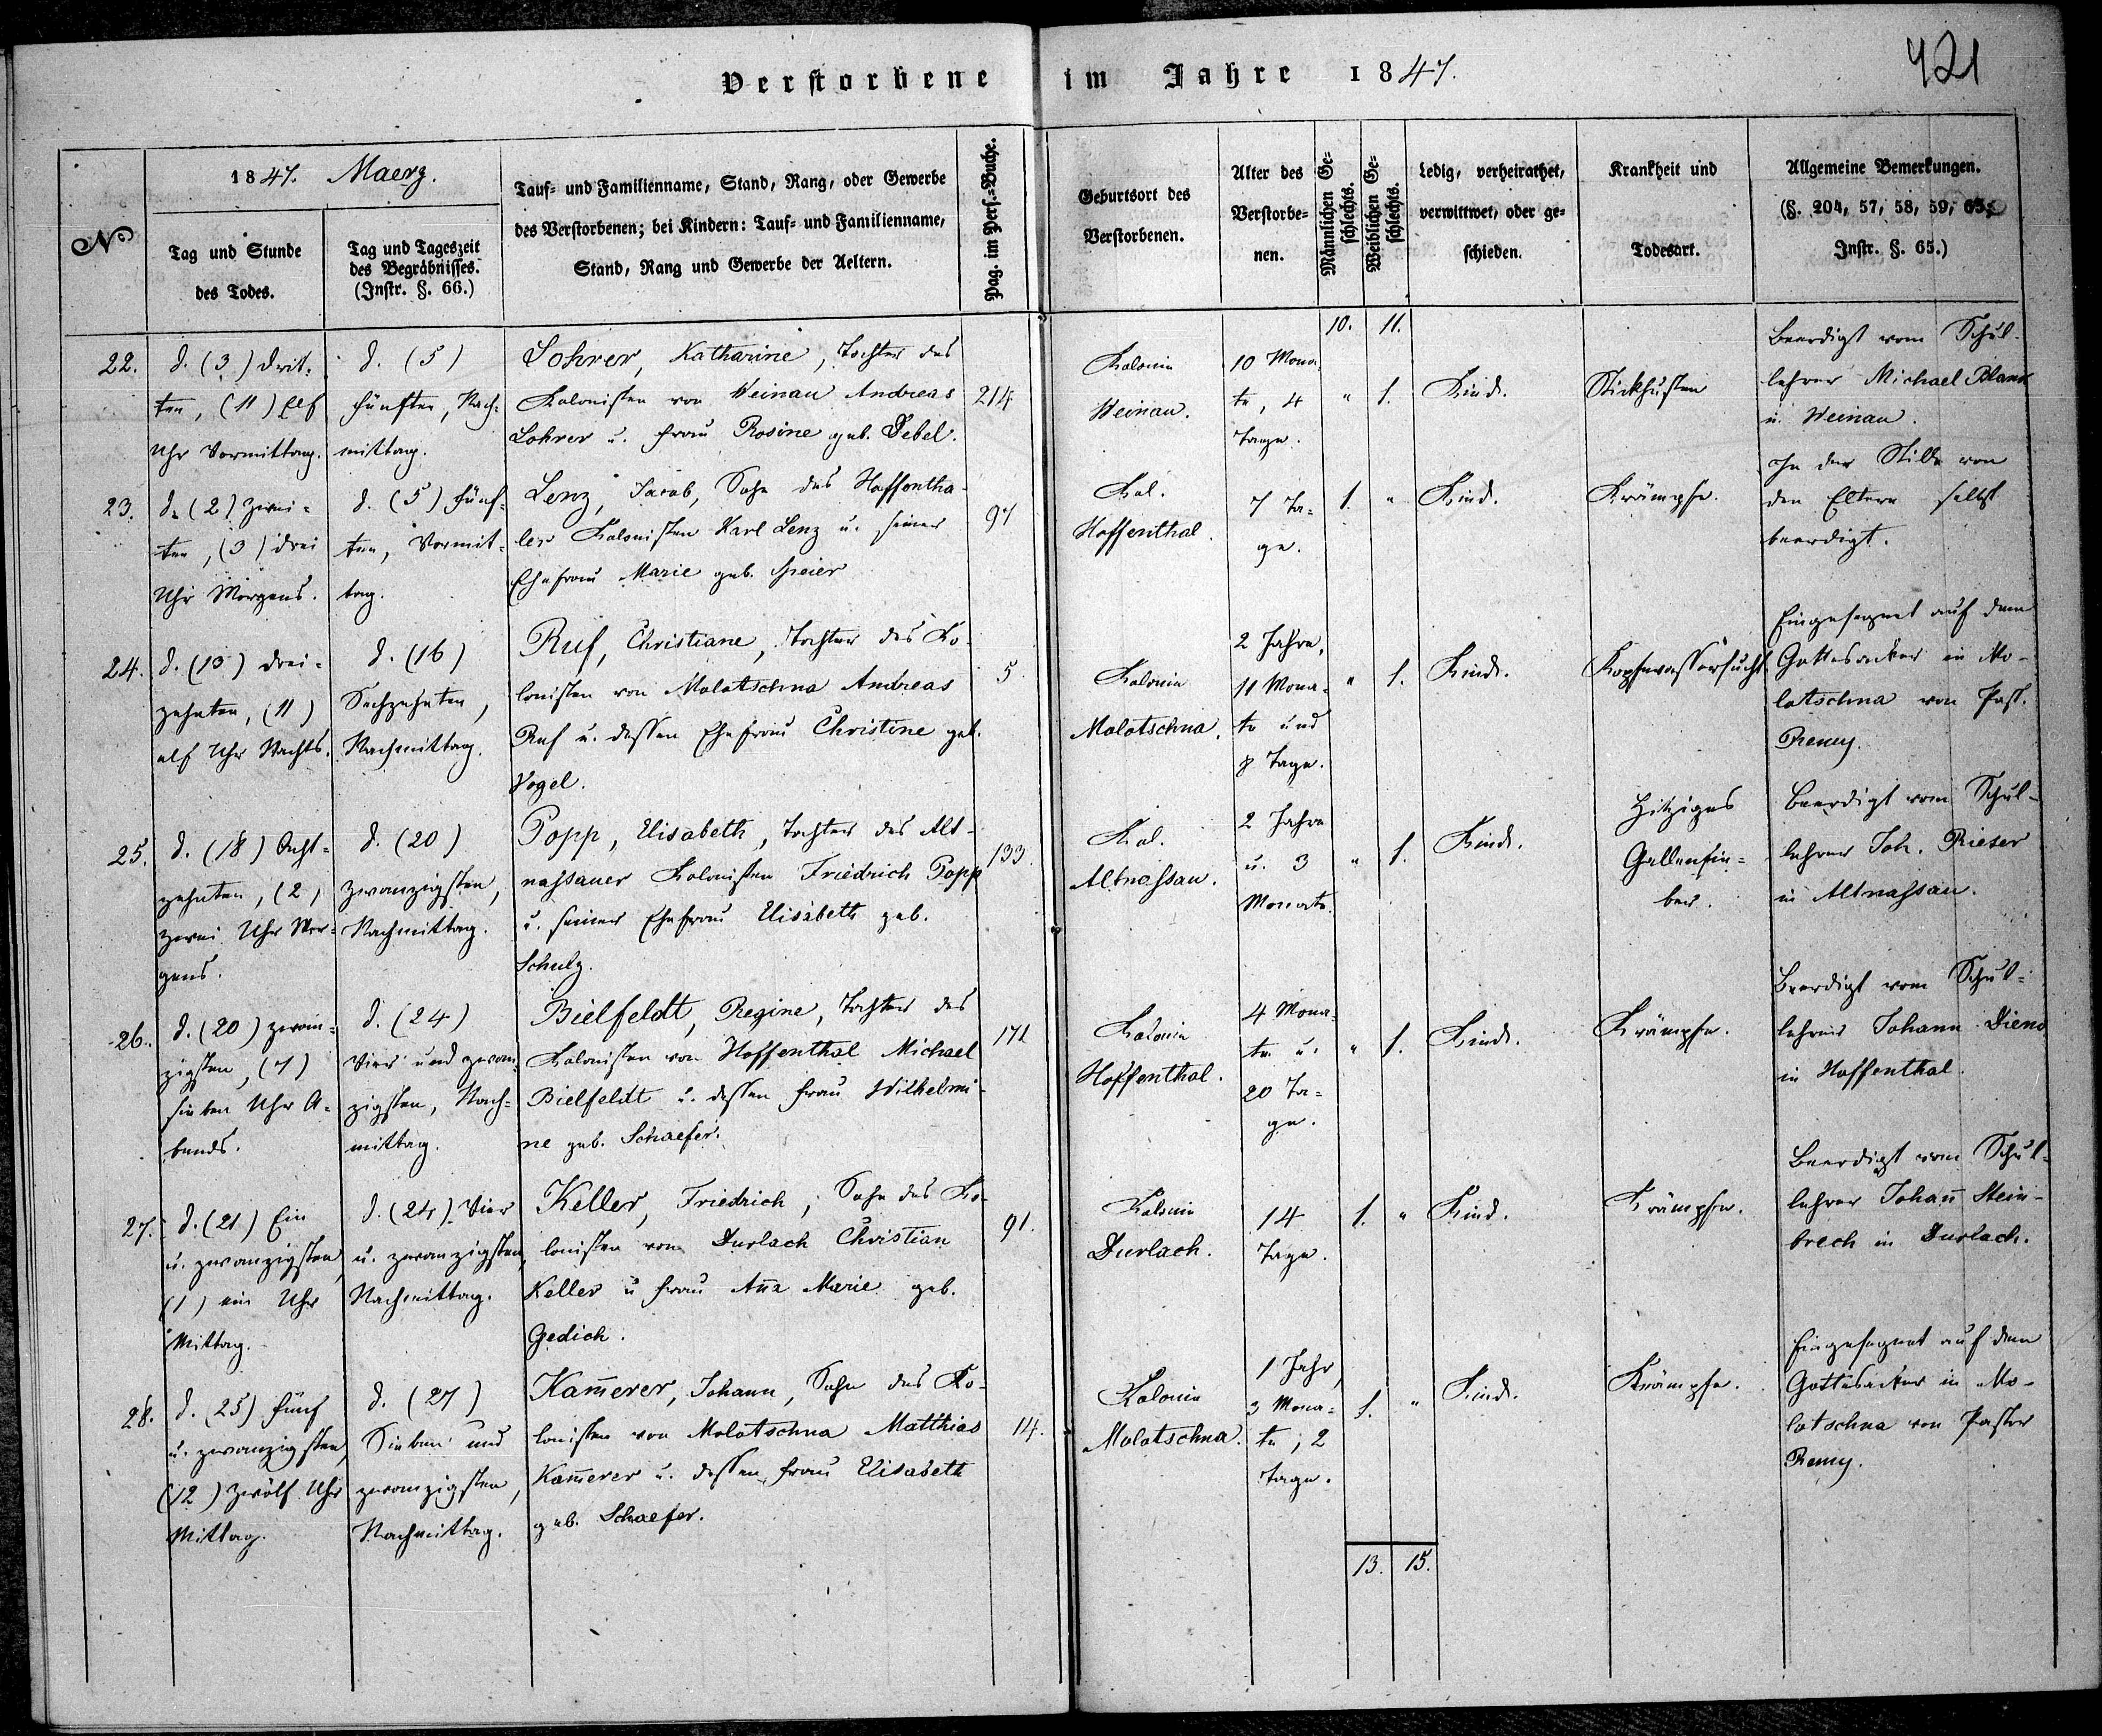 Verstorbene im Jahre 1847.
421
No
1847. Maerz.
Tag und Stunde
des Todes.
Tag und Tageszeit
des Begräbnisses.
(Instr. §. 66.)
Tauf- und Familienname, Stand, Rang, oder Gewerbe
des Verstorbenen; bei Kindern: Tauf- und Familienname,
Stand, Rang und Gewerbe der Aeltern.
Pag. im Pers.-Buche.
Geburtsort des
Verstorbenen.
Alter des
Verstorbe-
nen.
Männlichen Ge-
schlechts.
Weiblichen Ge-
schlechts.
Ledig, verheirathet,
verwittwet, oder ge-
schieden.
Krankheit und
Todesart.
Allgemeine Bemerkungen.
(§. 204, 57, 58, 59, 65,
Instr. §. 65.)
10. 11.
22.
d. (3) drit-
ten, (11) Elf
Uhr Vormittag.
d. (5)
fünften, Nach-
mittag.
Lohrer, Katharine, Tochter des
Kolonisten von Weinau Andreas
Lohrer u. Frau Rosine geb. Debel.
214
Kolonie
Weinau.
10 Mona-
te, 4
Tage.
" 1.
Kind.
Stickhusten
Beerdigt vom Schul-
lehrer Michael Blank
in Weinau.
23.
d. (2) Zwei-
ten, (3) drei
Uhr Morgens.
d. (5) fünf-
ten, Vormit-
tag.
Lenz, Jacob, Sohn des Hoffentha-
ler Kolonisten Karl Lenz u. seiner
Ehefrau Marie geb. Meier
97
Kol.
Hoffenthal.
7 Ta-
ge.
1. "
Kind.
Krämpfe.
In der Stille von
den Eltern selbst
beerdigt.
24.
d. (13) drei-
zehnten, (11)
elf Uhr Nachts.
d. (16)
Sechzehnten,
Nachmittag.
Ruf, Christiane, Tochter des Ko-
lonisten von Molotschna Andreas
Ruf u. dessen Ehefrau Christine geb.
Vogel.
5.
Kolonie
Molotschna.
2 Jahre,
11 Mona-
te und
8 Tage.
" 1.
Kind.
Kopfwassersucht
Eingesegnet auf dem
Gottesacker in Mo-
lotschna von Past.
Remy.
25.
d. (18) Acht-
zehnten, (2)
zwei Uhr Mor-
gens.
d. (20)
zwanzigsten,
Nachmittag.
Popp, Elisabeth, Tochter des Alt-
nassauer Kolonisten Friedrich Popp
u. seiner Ehefrau Elisabeth geb.
Schulz.
133.
Kol.
Altnassau.
2 Jahre
u. 3
Monate.
" 1.
Kind.
Hitziges
Gallenfie-
ber.
Beerdigt vom Schul-
lehrer Joh. Rieser
in Altnassau.
26.
d. (20) zwan-
zigsten, (7)
sieben Uhr A-
bends.
d. (24)
Vier und zwan-
zigsten, Nach-
mittag.
Bielfeldt, Regine, Tochter des
Kolonisten von Hoffenthal Michael
Bielfeldt u. dessen Frau Wilhelmi-
ne geb. Schaefer.
171
Kolonie
Hoffenthal.
4 Mona-
te u.
20 Ta-
ge.
" 1.
Kind.
Krämpfe.
Beerdigt vom Schul-
lehrer Johann
in Hoffenthal.
27.
d. (21) Ein
u. zwanzigsten,
(1) ein Uhr
Mittag.
d. (24) Vier
u. zwanzigsten,
Nachmittag.
Keller, Friedrich, Sohn des Ko-
lonisten von Durlach Christian
Keller u Frau Aña Marie geb.
Gedich.
91.
Kolonie
Durlach.
14
Tage.
1. "
Kind.
Krämpfe.
Beerdigt vom Schul-
lehrer Johañ Stein-
brech in Durlach.
28.
d. (25) fünf
u. zwanzigsten,
(12) Zwölf Uhr
Mittag.
d. (27)
Sieben und
zwanzigsten,
Nachmittag.
Kam̄erer, Johann, Sohn des Ko-
lonisten von Molotschna Matthias
Kam̄erer u. dessen Frau Elisabeth
geb. Schaefer.
14.
Kolonie
Molotschna.
1 Jahr,
3 Mona-
te, 2
Tage.
1. "
Kind.
Krämpfe.
Eingesegnet auf dem
Gottesacker in Mo-
lotschna von Pastor
Remy.
13. 15.